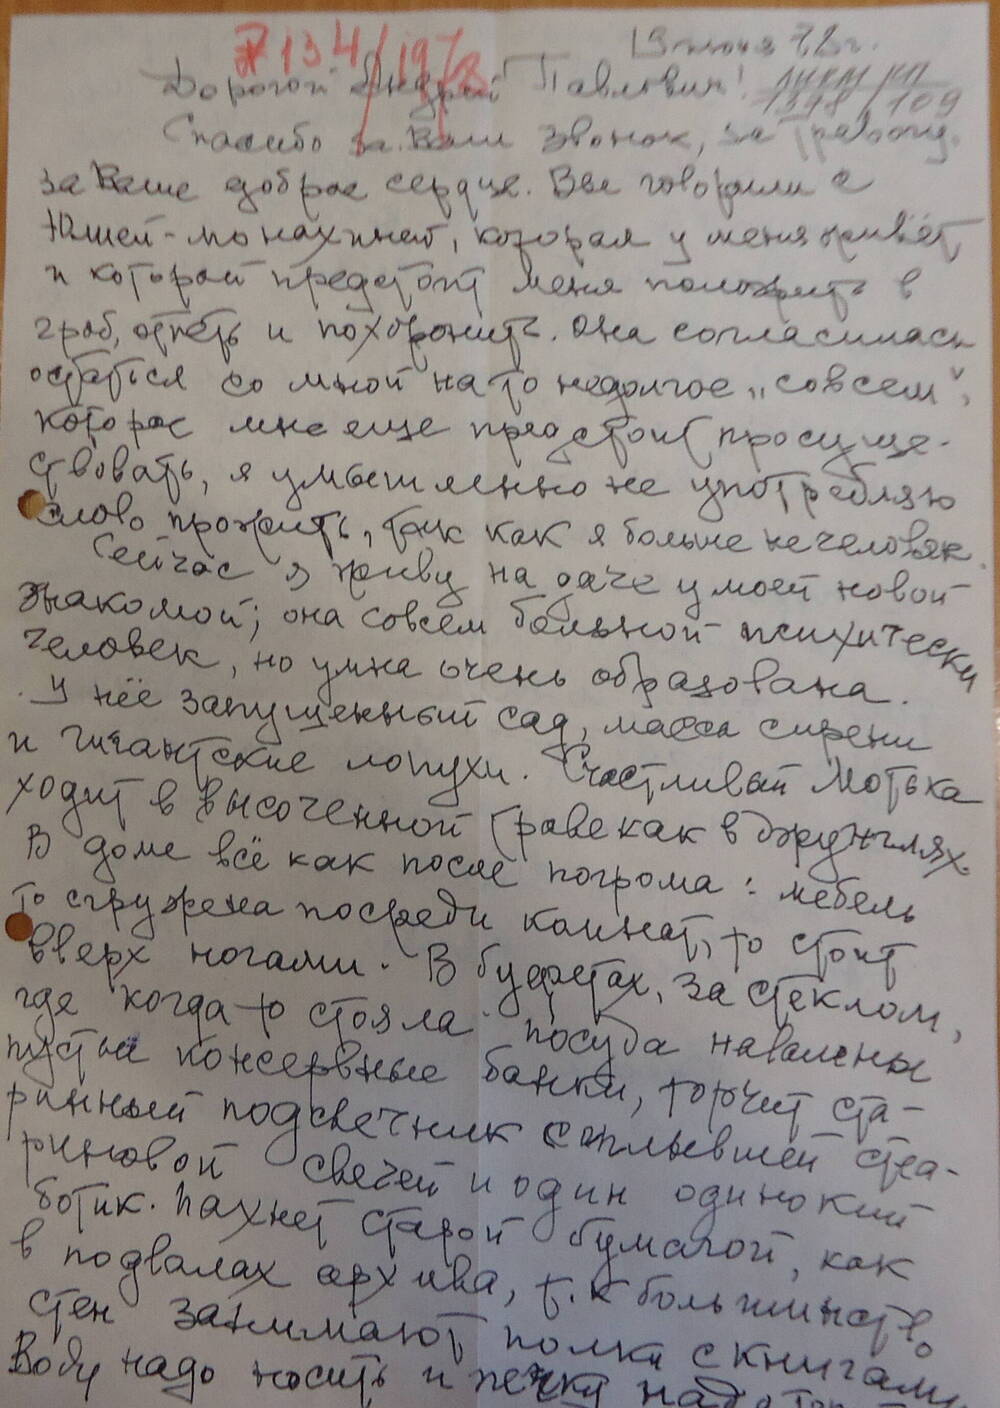 134/1978
19 июня 78 г.
Дорогой Андрей Павлович!
1398/109
Спасибо за Ваш звонок, за тревогу,
за Ваше доброе сердце. Вы говорили с
Юлией-монахиней, которая у меня живёт
и которой предстоит меня положить в
гроб, отпеть и похоронить. Она согласилась
остаться со мной на то недолгое „совсем",
которое мне еще предстоит просуще-
ствовать, я умышленно не употребляю
слово прожить, так как я больше не человек.
Сейчас я живу на даче у моей новой
знакомой; она совсем больной психически
человек, но умна очень образована.
У неё запущенный сад, масса сирени
и гигантские лопухи. Счастливый Мотька
ходит в высоченной траве как в джунглях.
В доме всё как после погрома: мебель
то сгружена посреди комнат, то стоит
вверх ногами. В буфетах, за стеклом,
где когда-то стояла посуда навалены
пустые консервные банки, торчит ста-
ринный подсвечник с оплывшей стеа-
риновой свечей и один одинокий
ботик. Пахнет старой бумагой, как
в подвалах архива, т.к. большинство
стен занимают полки с книгами
Воду надо носить и печку надо